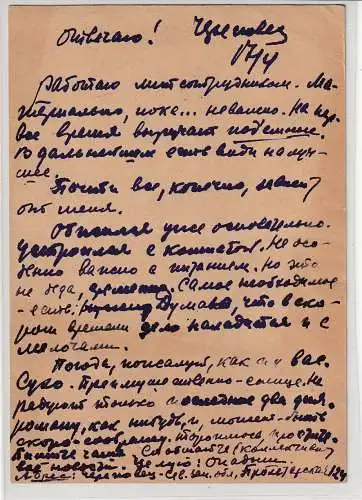 Отвечаю! Череповец
17/4
Работаю литсотрудником. Ма-
териально, пока... неважно. На пер-
вое время выручают подъемные.
В дальнейшем есть виды на луч-
шее.
Почти все, конечно, зависит
от меня.
Обжился уже основательно.
Устроился с комнатой. Не осо-
бенно важно с питанием. Но это
не беда, Самое необходимое
есть. Думаю, что в ско-
ром времени дело наладится и с
мелочами.
Погода, пожалуй, как и у вас.
Сухо. Преимущественно солнце. Не
радуют только последние два дня.
как нибудь, и, может быть
скоро сообщу.
Сообщайте (коллективно)
все новости. Целую!
Адрес: Череповец Пролетарская